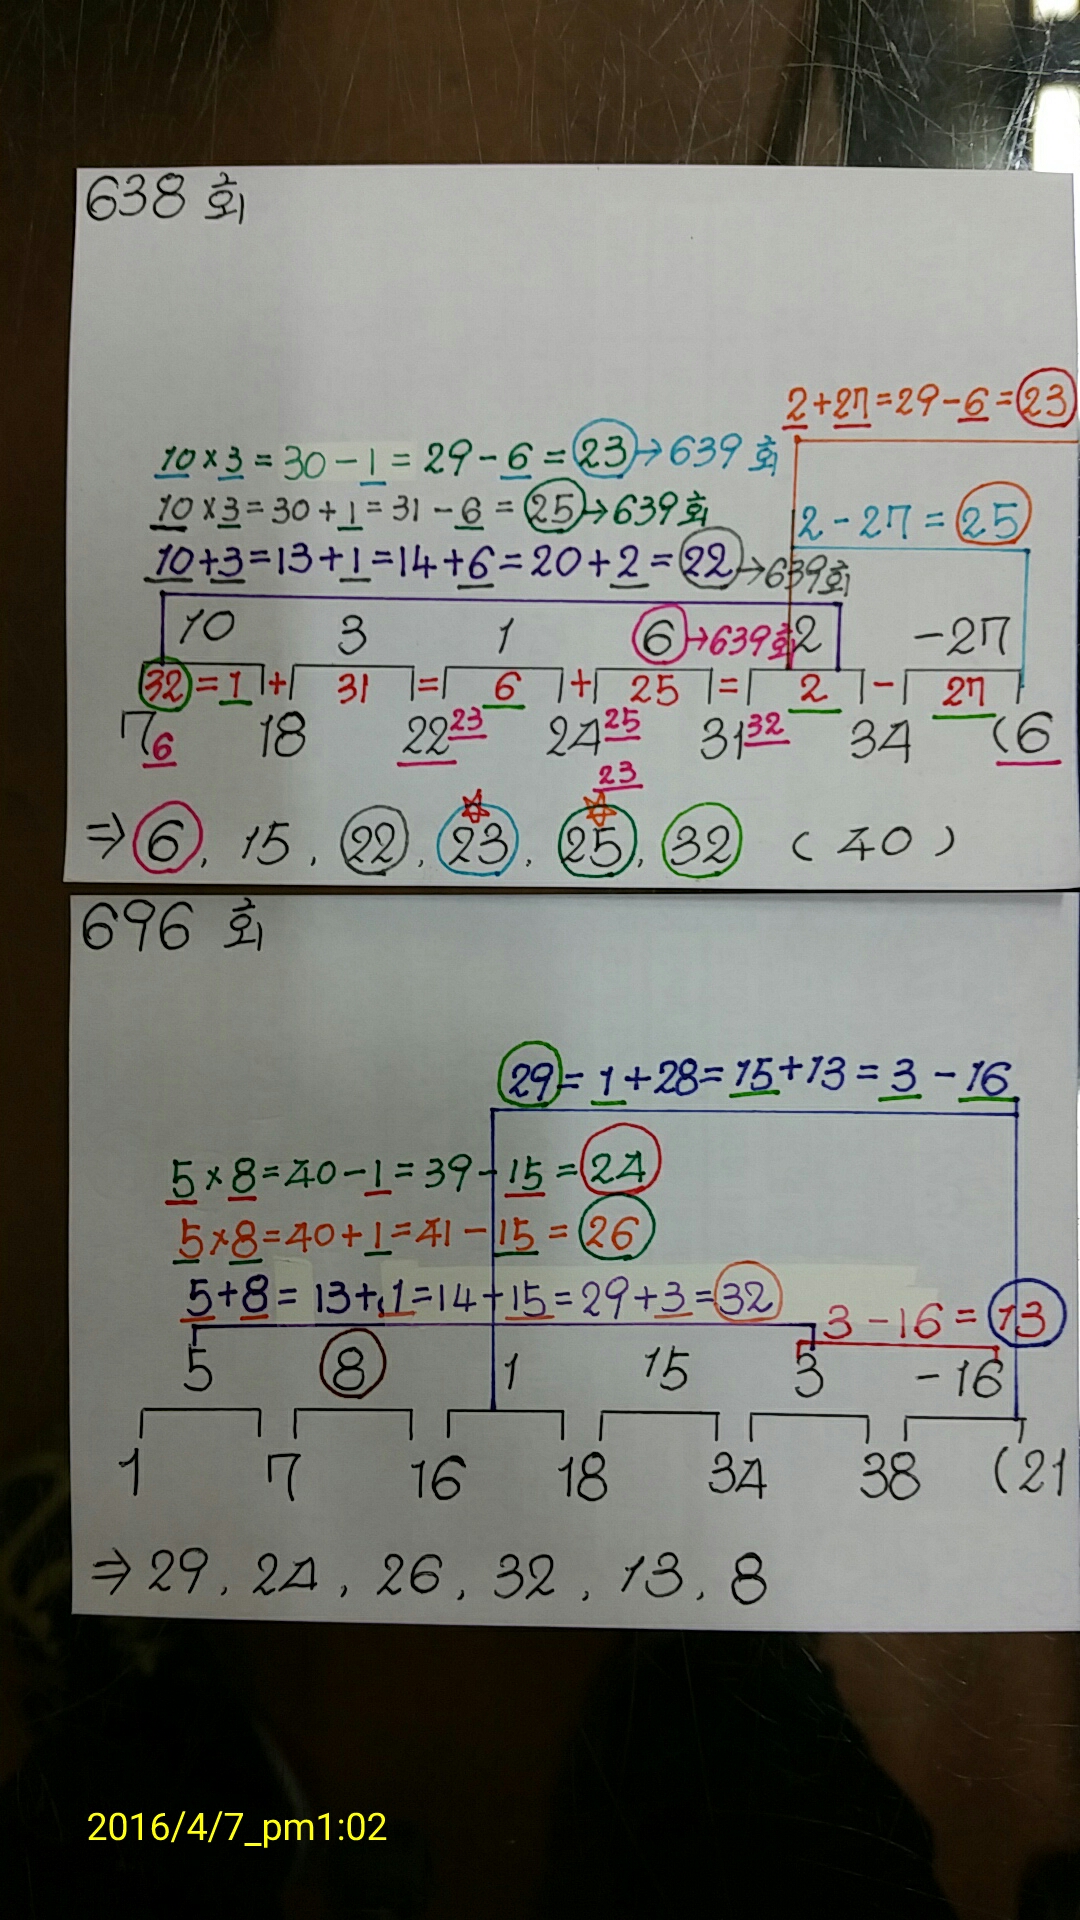 638 회
2+27=29-6=23
10×3=30-1=29-6=23→639회
10×3=30+1=31-6=25→639회
2-27=25
10+3=13+1=14+6=20+2=22→639회
10 3 1 6→639회 2 -27
32=1+31=6+25=2-27
7 6 18 22 23 24 25 31 32 34 (6
23
⇒ 6, 15, 22, 23, 25, 32 (40)
696 회
29=1+28=15+13=3-16
5×8=40-1=39-15=24
5×8=40+1=41-15=26
5+8=13+1=14+15=29+3=32
3-16=13
5 8 1 15 3 -16
1 7 16 18 34 38 (21
⇒ 29, 24, 26, 32, 13, 8
2016/4/7_pm1:02